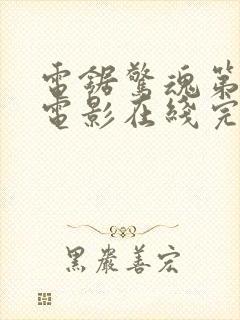 電鋸驚魂第
電影在綫完
黑嚴善宏